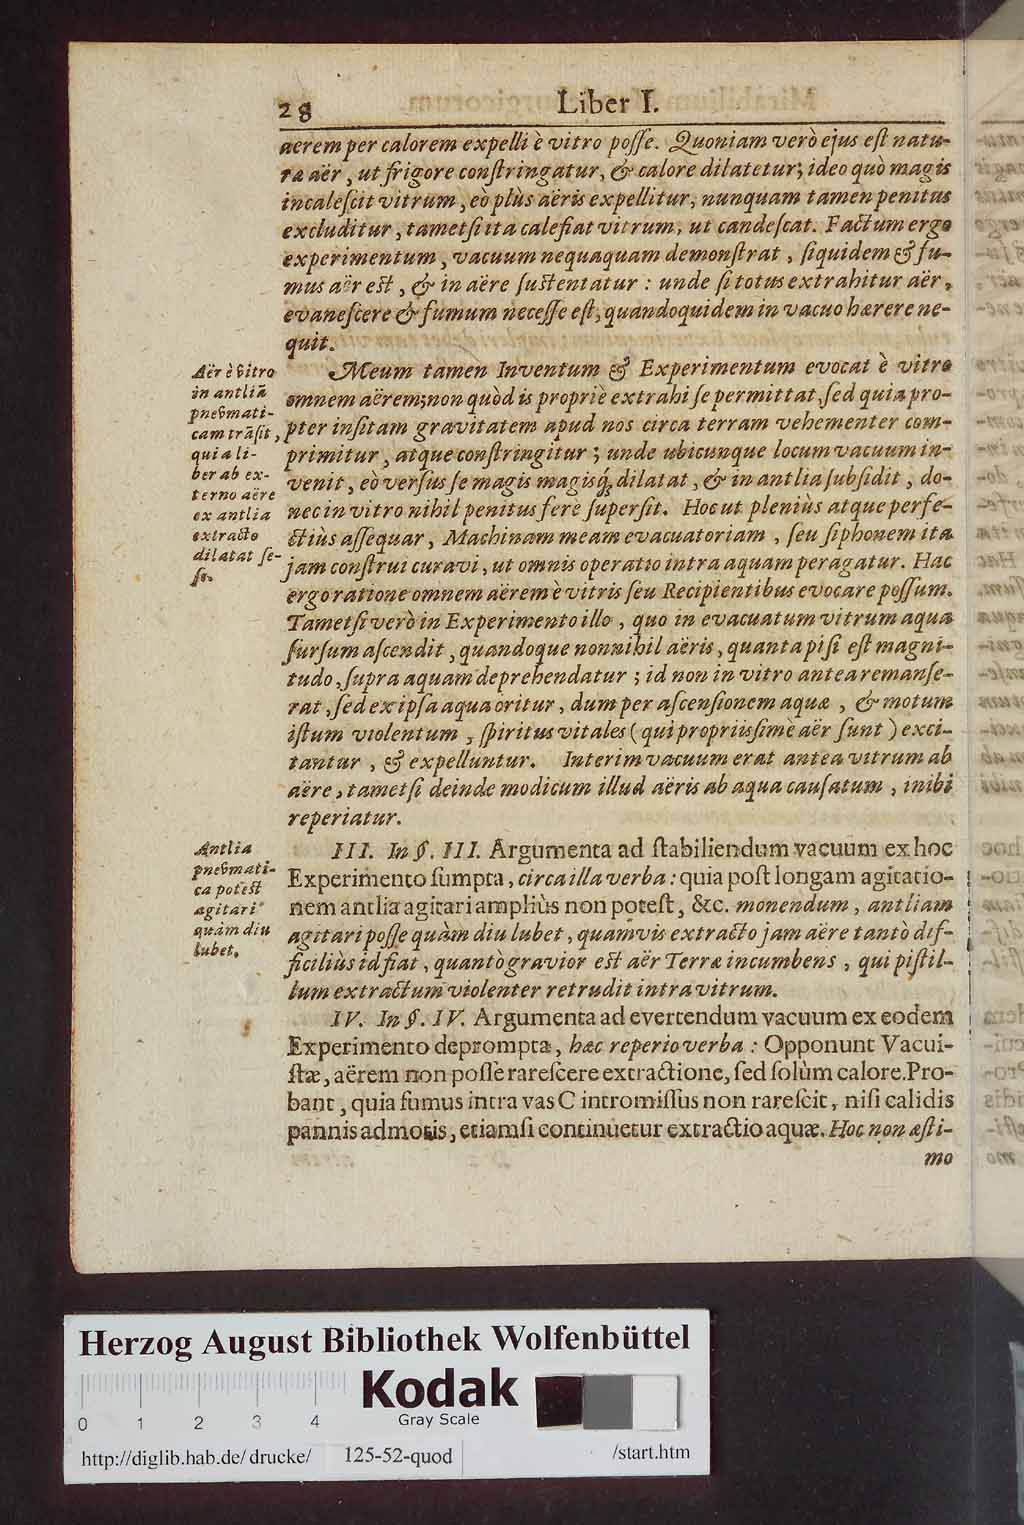 28 Liber I.
aerem per calorem expelli è vitro poſſe. Quoniam verò ejus eſt natu-
ra aër, ut frigore conſtringatur, & calore dilatetur; ideo quò magis
incaleſcit vitrum, eò plùs aëris expellitur, nunquam tamen penitus
excluditur, tametſi ita calefiat vitrum, ut candeſcat. Factum ergo
experimentum, vacuum nequaquam demonſtrat, ſiquidem & fu-
mus aër eſt, & in aëre ſuſtentatur: unde ſi totus extrahitur aër,
evaneſcere & fumum neceſſe eſt, quandoquidem in vacuo hærere ne-
quit.
Aër è vitro
in antliã
pnevmati-
cam trãſit,
quia li-
ber ab ex-
terno aëre
ex antlia
extracto
dilatat ſe-
ſe.
Meum tamen Inventum & Experimentum evocat è vitro
omnem aërem; non quòd is propriè extrahi ſe permittat, ſed quia pro-
pter inſitam gravitatem apud nos circa terram vehementer com-
primitur, atque conſtringitur; unde ubicunque locum vacuum in-
venit, eò verſus ſe magis magisq́; dilatat, & in antlia ſubſidit, do-
nec in vitro nihil penitus fere ſuperſit. Hoc ut pleniùs atque perfe-
ctiùs aſſequar, Machinam meam evacuatoriam, ſeu ſiphonem ita
jam conſtrui curavi, ut omnis operatio intra aquam peragatur. Hac
ergo ratione omnem aërem è vitris ſeu Recipientibus evocare poſſum.
Tametſi verò in Experimento illo, quo in evacuatum vitrum aqua
ſurſum aſcendit, quandoque nonnihil aëris, quanta piſi eſt magni-
tudo, ſupra aquam deprehendatur; id non in vitro antea remanſe-
rat, ſed ex ipſa aqua oritur, dum per aſcenſionem aquæ, & motum
iſtum violentum, ſpiritus vitales (qui propriiſſimè aër ſunt) exci-
tantur, & expelluntur. Interim vacuum erat antea vitrum ab
aëre, tametſi deinde modicum illud aëris ab aqua cauſatum, inibi
reperiatur.
Antlia
pnevmati-
ca poteſt
agitari
quàm diu
lubet.
III. In §. III. Argumenta ad ſtabiliendum vacuum ex hoc
Experimento ſumpta, circa illa verba: quia poſt longam agitatio-
nem antlia agitari ampliùs non poteſt, &c. monendum, antliam
agitari poſſe quàm diu lubet, quamvis extracto jam aëre tantò dif-
ficiliùs id fiat, quantò gravior eſt aër Terræ incumbens, qui piſtil-
lum extractum violenter retrudit intra vitrum.
IV. In §. IV. Argumenta ad evertendum vacuum ex eodem
Experimento deprompta, hæc reperio verba: Opponunt Vacui-
ſtæ, aërem non poſſe rareſcere extractione, ſed ſolùm calore. Pro-
bant, quia fumus intra vas C intromiſſus non rareſcit, niſi calidis
pannis admotis, etiamſi continuetur extractio aquæ. Hoc non æſti-
mo
Herzog August Bibliothek Wolfenbüttel
0 1 2 3 4
Kodak
Gray Scale
http://diglib.hab.de/drucke/ 125-52-quod /start.htm